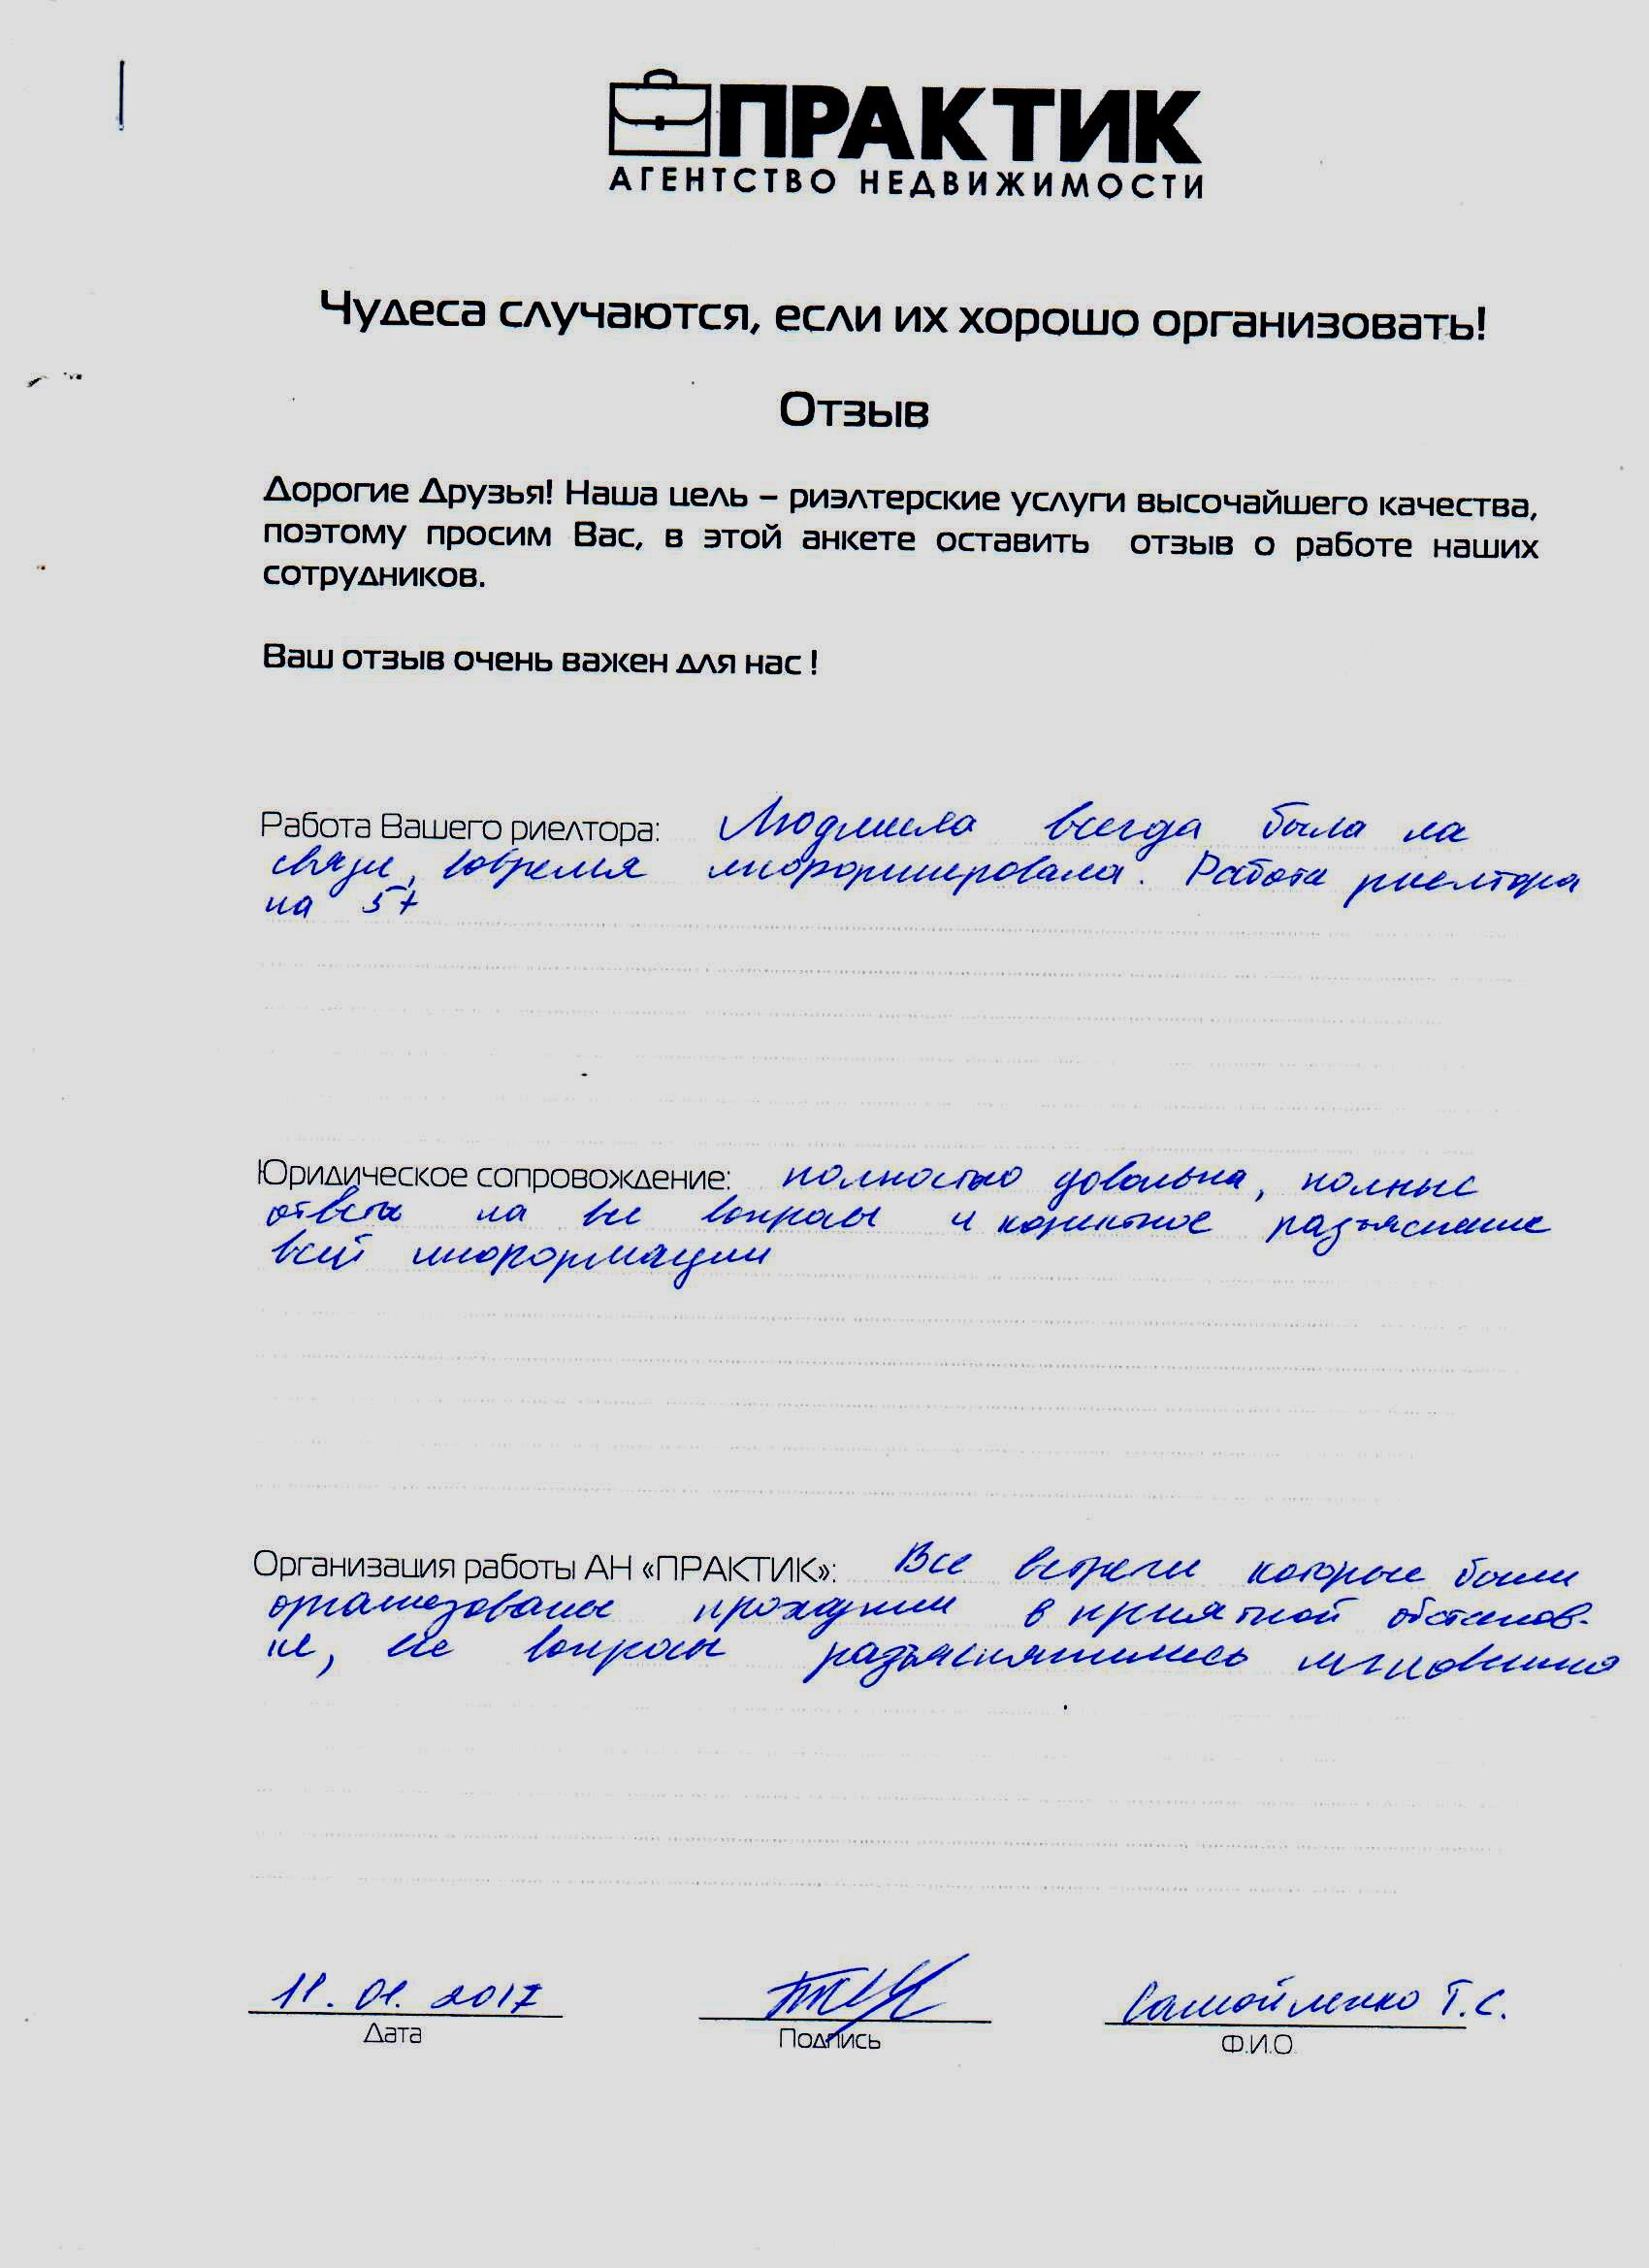 ПРАКТИК
АГЕНТСТВО НЕДВИЖИМОСТИ
Чудеса случаются, если их хорошо организовать!
Отзыв
Дорогие Друзья! Наша цель – риэлтерские услуги высочайшего качества,
поэтому просим Вас, в этой анкете оставить отзыв о работе наших
сотрудников.
Ваш отзыв очень важен для нас !
Работа Вашего риелтора: Людмила всегда была на
связи, вовремя информировала. Работа риелтора
на 5+
Юридическое сопровождение: полностью довольна, полные
ответы на все вопросы и коректное разъяснение
всей информации
Организация работы АН «ПРАКТИК»: Все встречи которые были
организованы проходили в приятной обстанов-
ке, все вопросы разъяснялись мгновенно
11.01.2017
Самойленко Т.С.
Дата
Подпись
Ф.И.О